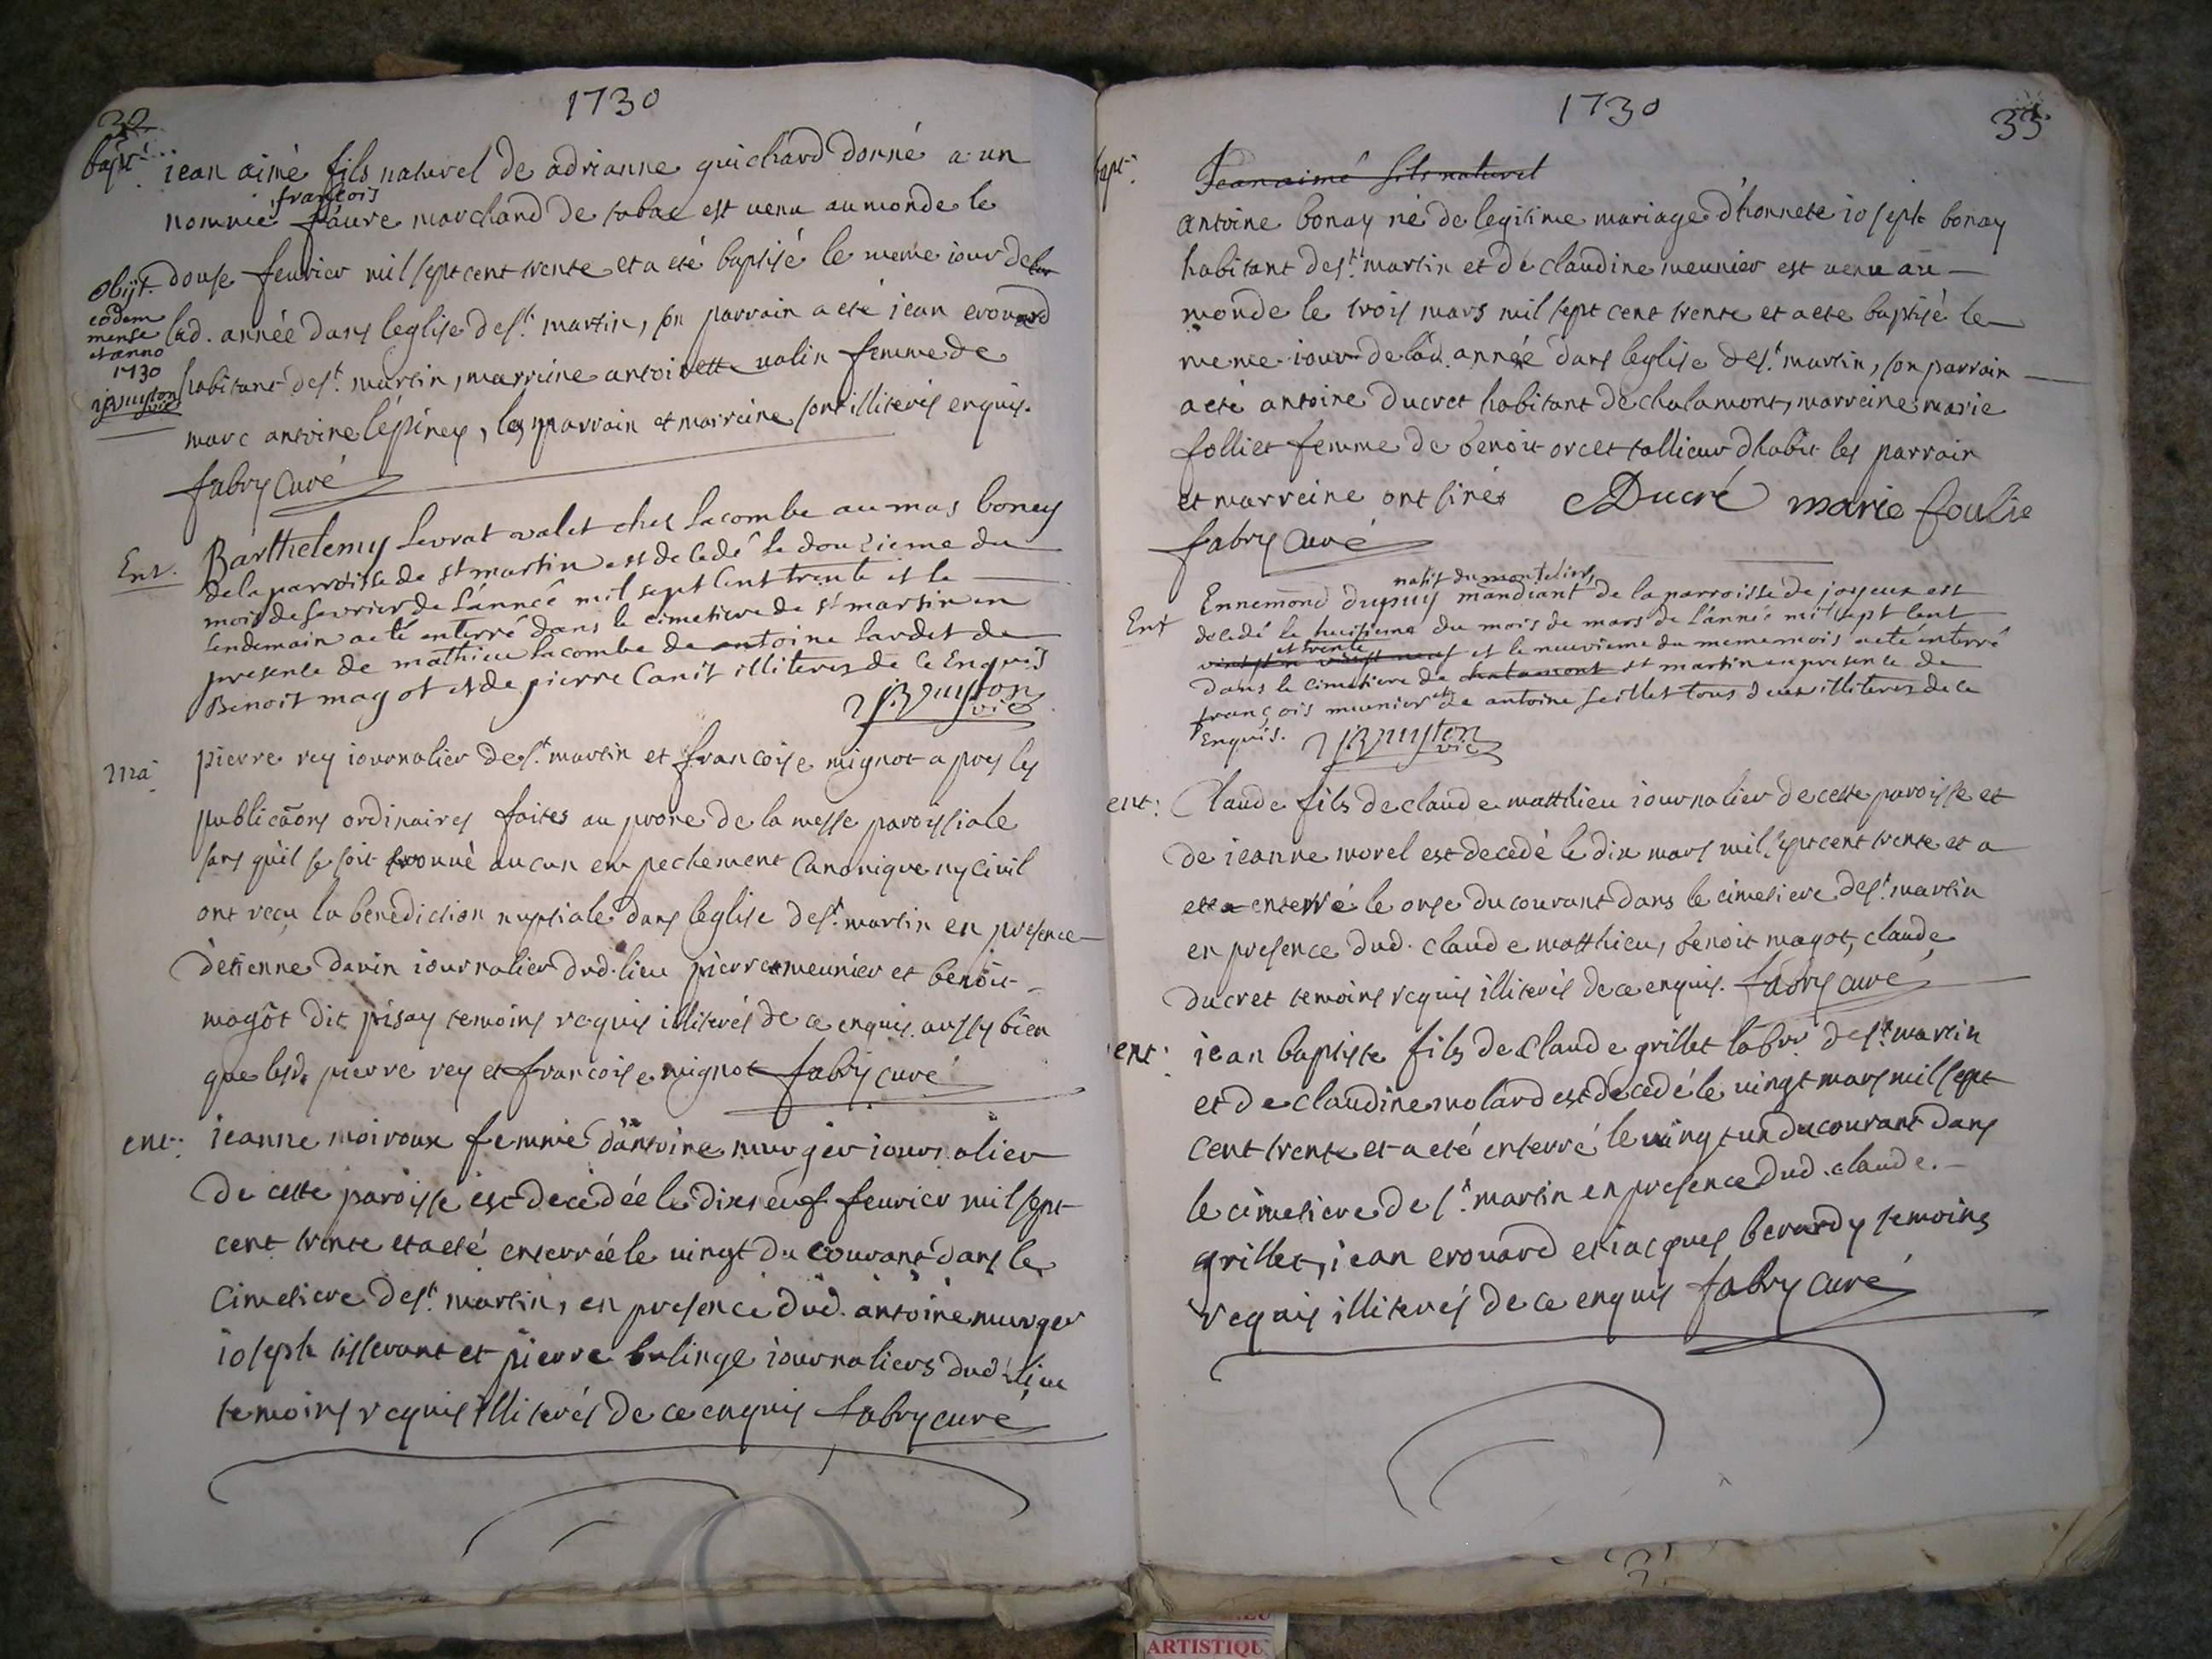 1730
32
bapt. jean aimé fils naturel de adrianne guichard donné a un
françois
nommé faure marchand de tabac est venu au monde le
douse feuvrier mil sept cent trente et a eté baptisé le meme iour de
lad. année dans leglise de st. martin, son parrain a eté jean erouard
habitant de st. martin, marreine antoinette valin femme de
marc antoine lépiney, les parrain et marreine sont illiterés enquis.
obijt.
eodem
mense
et anno
1730
vic
fabry curé
Ent. Barthelemy Levrat valet ches Lacombe au mas boney
de la parroisse de st martin est decedé le douzieme du
mois de fevrier de l'année mil sept cent trente et le
lendemain a eté enterré dans le cimetiere de st martin en
presence de mathieu lacombe de antoine lardet de
Benoit magot et de pierre Canit illiteres de ce Enquis
vic
ma. pierre rey iournalier de st. martin et francoise mignot apres les
publicaons ordinaires faites au prone de la messe paroissiale
sans qu'il se soit trouvé aucun empechement canonique ny civil
ont reçu la benediction nuptiale dans leglise de st. martin en presence
d'etienne davin iournalier dud. lieu pierre meunier et benoit
magôt dit pisay temoins requis illiterés de ce enquis aussy bien
que lesd. pierre rey et francoise mignot fabry curé
ent: jeanne moiroux femme d'antoine murger iournalier
de cette paroisse est decedée le dixneuf feuvrier mil sept
cent trente et a eté enterrée le vingt du courant dans le
cimetiere de st. martin, en presence dud. antoine murger
joseph tisserant et pierre balinge iournaliers dud. lieu
temoins requis illiterés de ce enquis fabry curé
1730
33
bapt: Jean aimé fils naturel
antoine bonay né de legitime mariage d'honnete joseph bonay
habitant de st. martin et de claudine meunier est venu au
monde le trois mars mil sept cent trente et a eté baptisé le
meme iour de lad. année dans leglise de st. martin, son parrain
a eté antoine ducret habitant de chalamont, marreine marie
folliet femme de benoit orcet tallieur dhabit les parrain
et marreine ont sinés Ducré marie foulie
fabry curé
natif du montelier,
Ent Ennemond dupuy mandiant de la parroisse de joyeux est
decedé le huitieme du mois de mars de l'année mil sept cent
et trente
et le neuvieme du meme mois a eté enterré
dans le cimetiere de chalamont st martin en presence de
françois meunier et de antoine seillet tous deux illiteres de ce
Enquis.
vic
ent: Claude fils de claude matthieu iournalier de cette paroisse et
de jeanne morel est decedé le dix mars mil sept cent trente et a
eté enterré le onse du courant dans le cimetiere de st. martin
en presence dud. claude matthieu, benoit magot, claude
ducret temoins requis illiterés de ce enquis. fabry curé
ent: jean baptiste fils de claude grillet labr. de st. martin
et de claudine molard est decedé le vingt mars mil sept
cent trente et a eté enterré le vingt un du courant dans
le cimetiere de st. martin en presence dud. claude.
grillet, jean erouard et jacques berardy temoins
requis illiterés de ce enquis fabry curé
ARTISTIQU